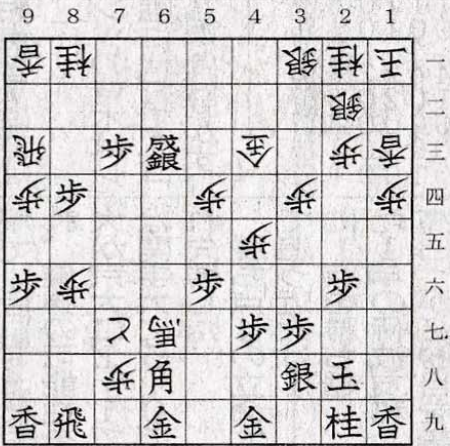 9 8 7 6 5 4 3 2 1
香 桂 銀 桂 王 一
銀 二
飛 歩 銀 金 歩 香 三
歩 歩 歩 歩 歩 四
歩 五
歩 歩 歩 歩 六
と 馬 歩 歩 七
歩 角 銀 玉 八
香 飛 金 金 桂 香 九